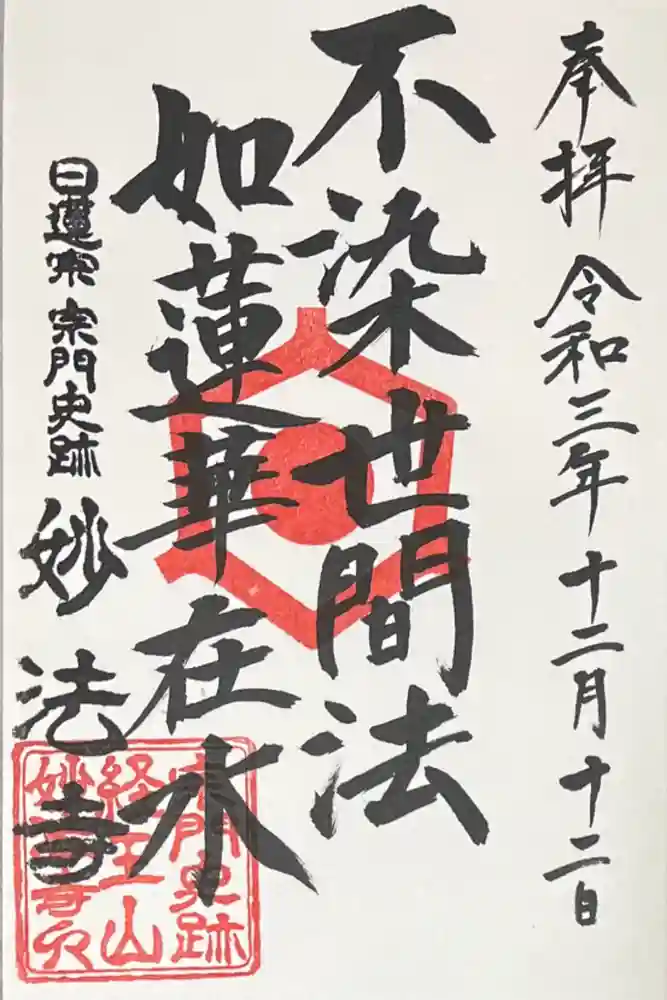 奉拝 令和三年十二月十二日
不染世間法
如蓮華在水
日蓮宗 宗門史跡 妙法寺
宗門史跡
経王山
妙法寺